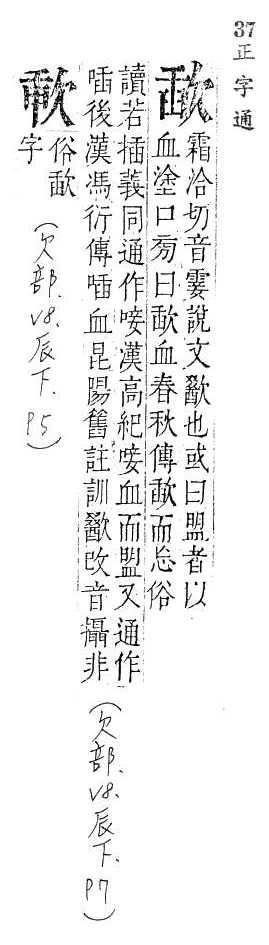 37正字通
歃
霜洽切音霎說文歠也或曰盟者以
血塗口旁曰歃血春秋傳歃而忘俗
讀若插義同通作唼漢高紀唼血而盟又通作
喢後漢馮衍傳喢血昆陽舊註訓歠改音攝非
(欠部. V8. 辰下. P7)
俗歃
字
(欠部. V8. 辰下. P5)